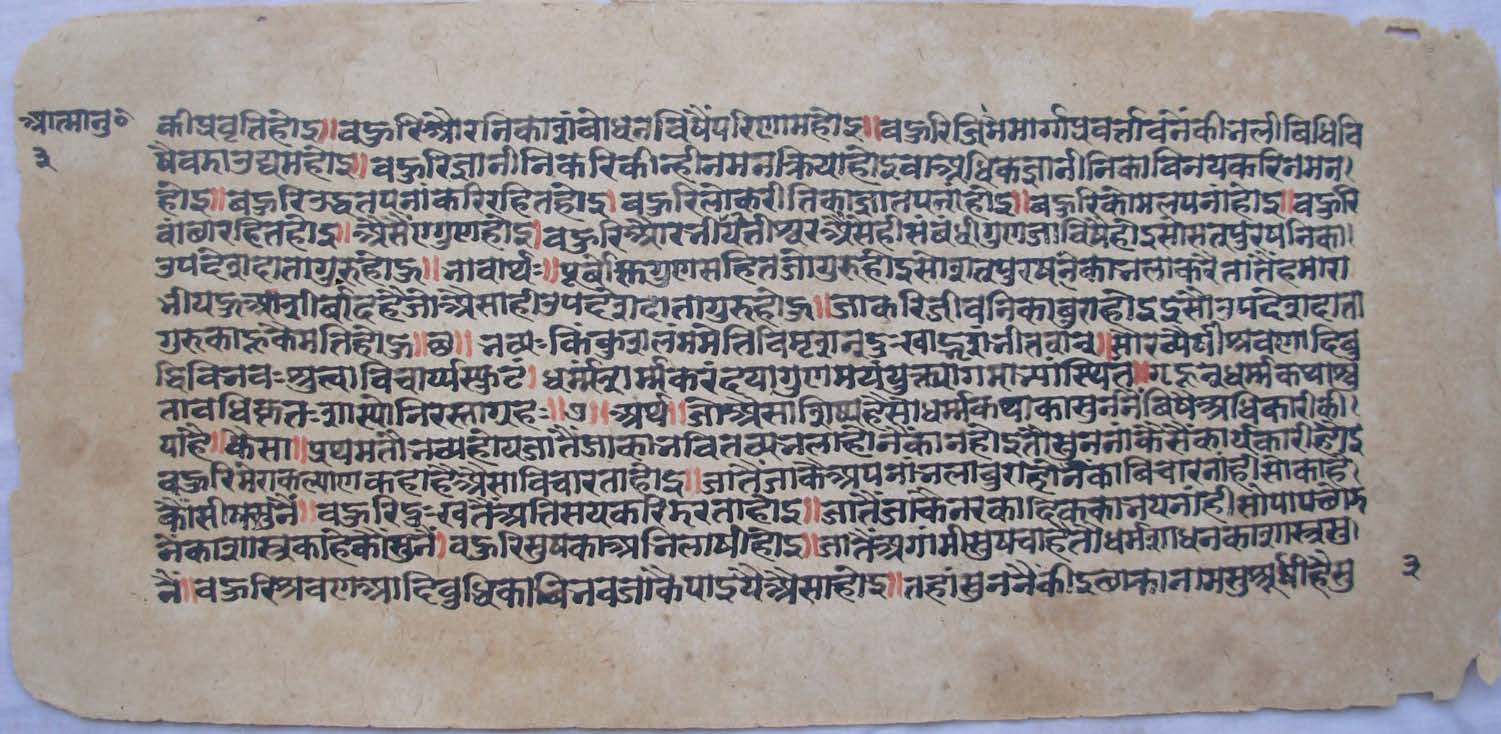 आत्मानु॰
३
कीप्रवृतिहोइ॥बहुरिऔरनिकासंबोधनविषैंपरिणामहोइ॥बहुरिजिनमार्गप्रवर्त्तावनेंकीभलीविधिवि
षैबडाउद्यमहोइ॥बहुरिज्ञानीनिकरिकीन्हीनमनक्रियाहोइवाअधिकज्ञानीनिकाविनयकरिनमन।
होइ॥बहुरिउद्धतपनांकरिरहितहोइ।बहुरिलोकरीतिकाज्ञातपनांहोइ॥बहुरिकोमलपनांहोइ॥बहुरि
वांछारहितहोइ॥ऐसेंएगुणहोइ।बहुरिऔरभीयतीश्वरऐसंहीसंबंधीगुणजाविषैहोइसोसतपुरषनिका।
उपदेशदातागुरुहोहु॥भावार्थः॥पूर्वोक्तिगुणसहितजोगुरुहोइसोशतपुरषनेंकाभलाकरैतातैंहमारा
भीयहुआशीर्बादहैजोऐसाहीउपदेशदातागुरुहोहु॥जाकरिजीवनिकाबुराहोइइसोउपदेशदाता
गुरुकाहूकैमतिहोहु॥छ॥भव्यःकिंकुशलंममेतिविमृशन्दुःखाद्भृशंभीतवान्॥सौख्यैषीश्रवणादिबु
द्धिविभवःश्रुत्वाविचार्य्यस्फुटं।धर्म्मशर्म्मकरंदयागुणमयंयुक्त्यागमाभ्यांस्थितं॥गृह्णन्धर्म्मकथाश्रु
तावधिकृतःशास्योनिरस्ताग्रहः॥७॥अर्थ॥जोऐसाशिष्यहैसोधर्म्मकथाकासुननेंबिषैअधिकारीकी।
याहै॥कैसा॥प्रथमतौभव्यहोयजातैंजाकाभवितव्यभलाहोनेकानहोइतौसुननांकैसैंकार्यकारीहोइ
बहुरिमेराकल्याणकहाहैऐसाविचारताहोइ॥जातैंजाकैअपनांभलाबुराहोनेंकाविचारनांहीसोकाहै।
कौंसीषसुनें॥बहुरिदुःखतेंअतिसयकरिडरताहोइ॥जातैंजाकैनरकादिककाभयनांहीसोपापछोड
नेंकाशास्त्रकाहेकौसुनें।बहुरिसुषकाअभिलाषीहोइ॥जातैंअगांमीसुषचाहेतौधर्मशाधनकाशास्त्रसु।
नें॥बहुरिश्रवणआदिबुधिकाविभवजांकैपाइयेऐसाहोइ॥तहांसुननैकीइछाकानामसुश्रूषीहैसु
३